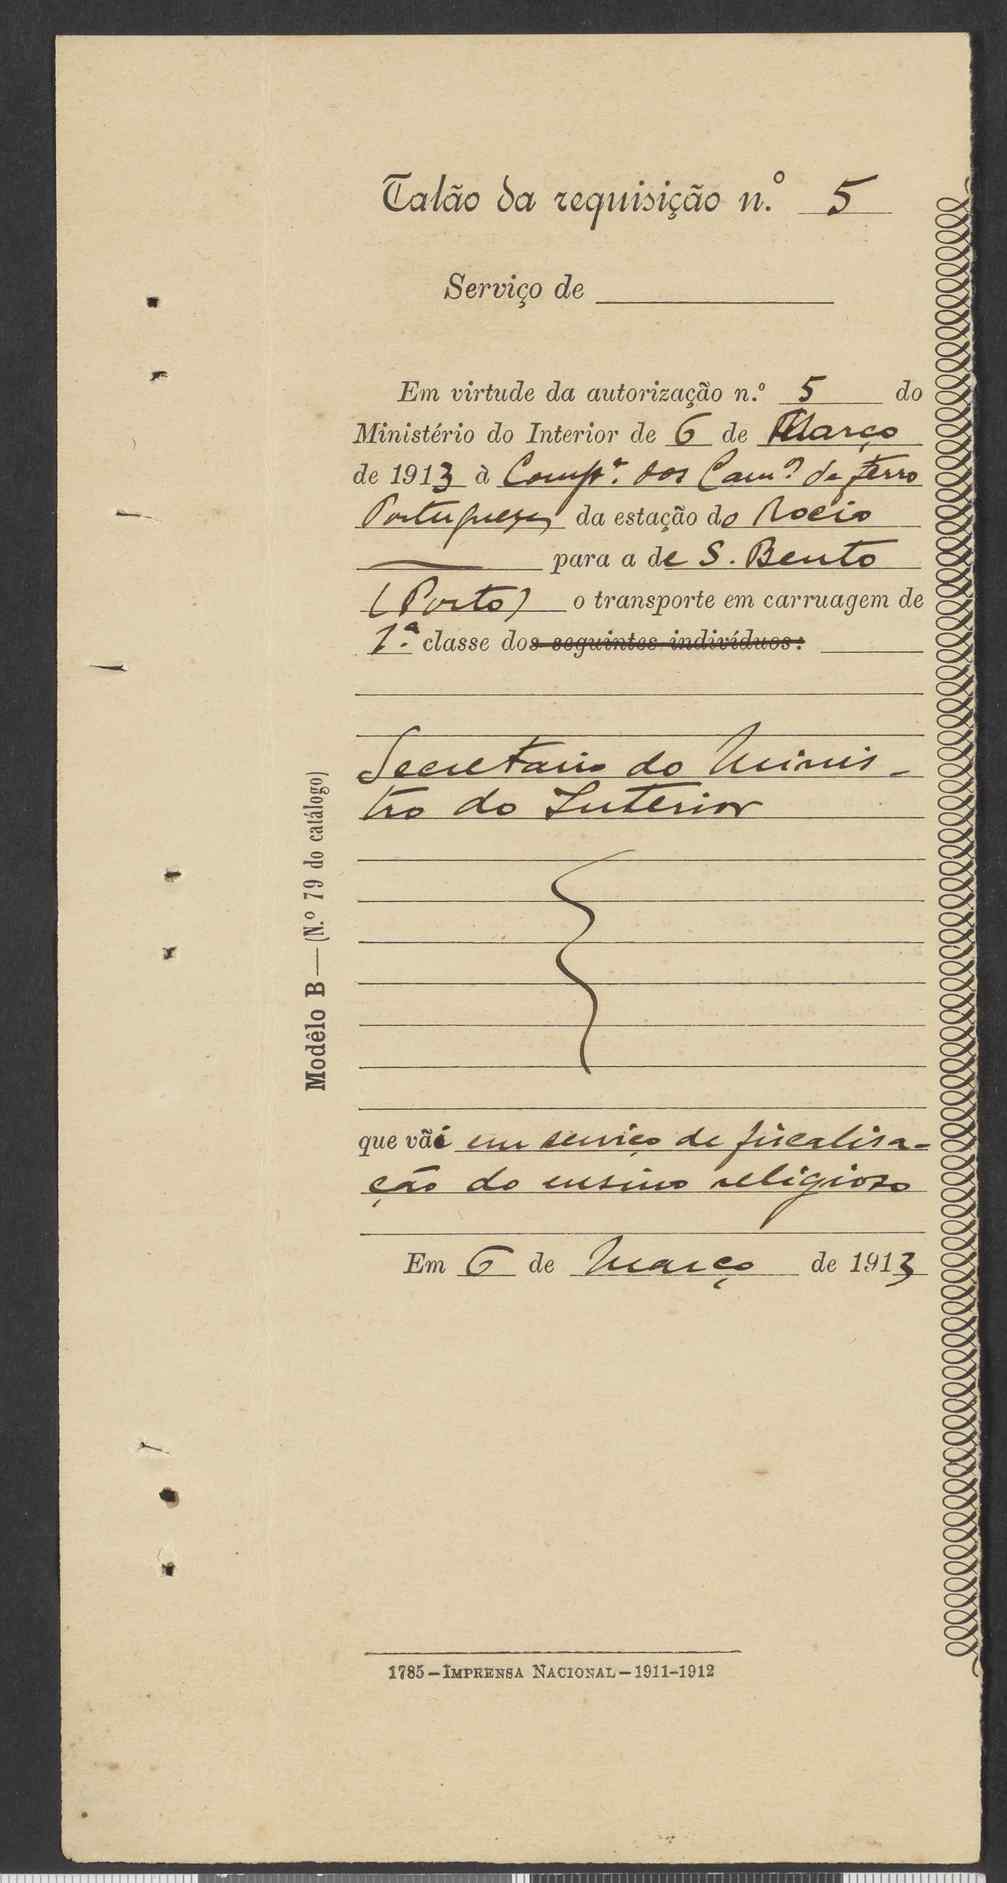 Talão da requisição n.º 5
Serviço de
Em virtude da autorização n.º 5 do
Ministério do Interior de 6 de Março
de 1913 à Comp.ª dos Cam.os de ferro
Portuguezes da estação do Rocio
para a de S. Bento
(Porto) o transporte em carruagem de
1.ª classe dos seguintes indivíduos:
Secretario do Minis-
tro do Interior
que vãi em serviço de fiscalisa-
ção do ensino religioso
Em 6 de Março de 1913
Modêlo B—(N.º 79 do catálogo)
1785—IMPRENSA NACIONAL—1911-1912